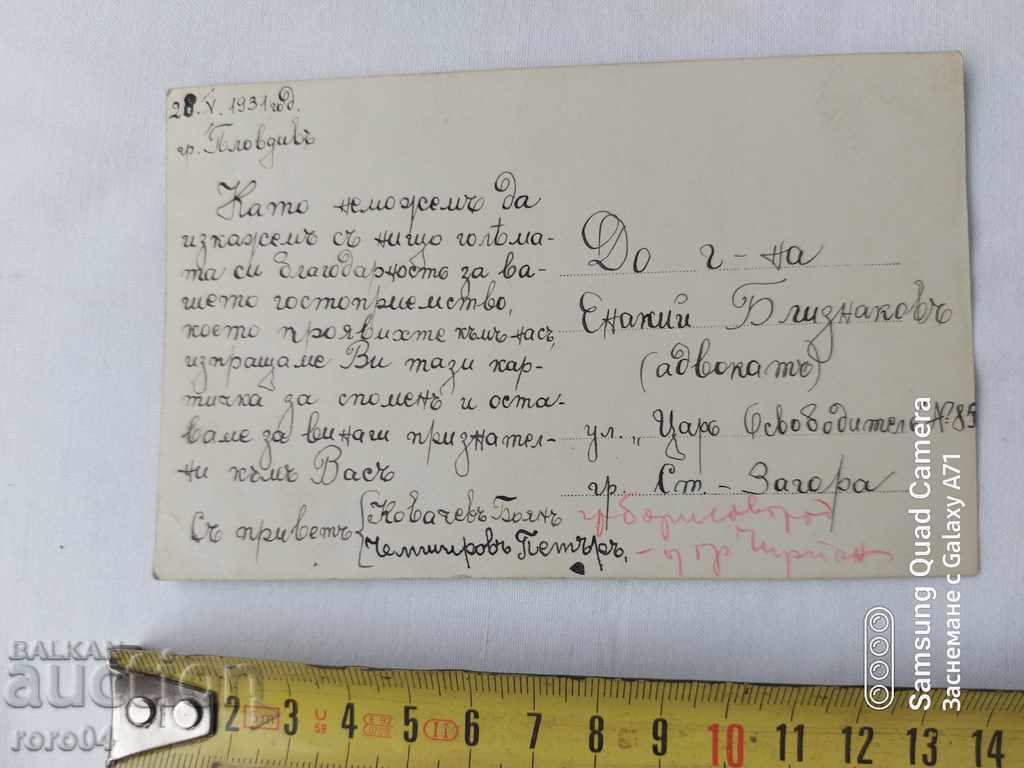 28.V.1931 год.
гр. Пловдивъ
Като неможемъ да
изкажемъ съ нищо голѣма-
та си благодарность за ва-
шето гостоприемство,
което проявихте къмъ насъ,
изпращаме Ви тази кар-
тичка за споменъ и оста-
ваме за винаги признател-
ни къмъ Васъ
Съ приветъ
Ковачевъ Боянъ гр Борисовград
Чемширровъ Петъръ, – гр Чирпан
До г-на
Енакий Близнаковъ
(адвокатъ)
ул. „Царь Освободитель №85
гр. Ст. - Загора
BALKAN
auction
roro04
2 3 4 5 6 7 8 9 10 11 12 13 14
II
Samsung Quad Camera
Заснемане с Galaxy A71